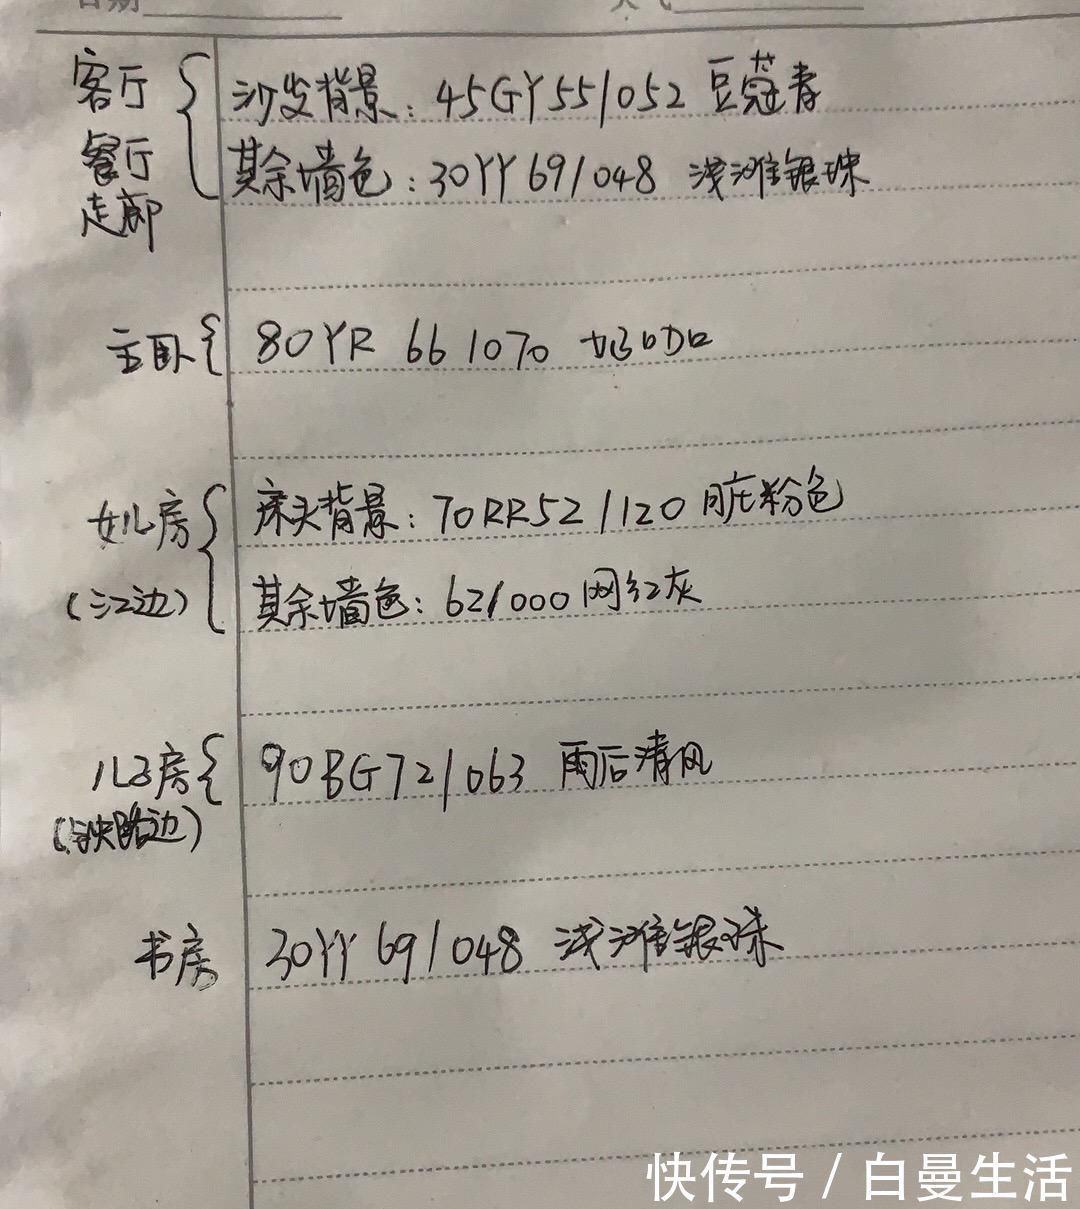 客厅
餐厅
走廊
沙发背景：45GY55/052 豆蔻青
其余墙色：30YY 69/048 浅滩银珠
主卧 80YR 66 1070
女儿房
(江边)
床头背景：70RR52/120 脏粉色
其余墙色：62/000 网红灰
儿子房 90BG72/063 雨后清风
(铁路边)
书房 30YY 69/048 浅滩银珠
快传号 / 白曼生活